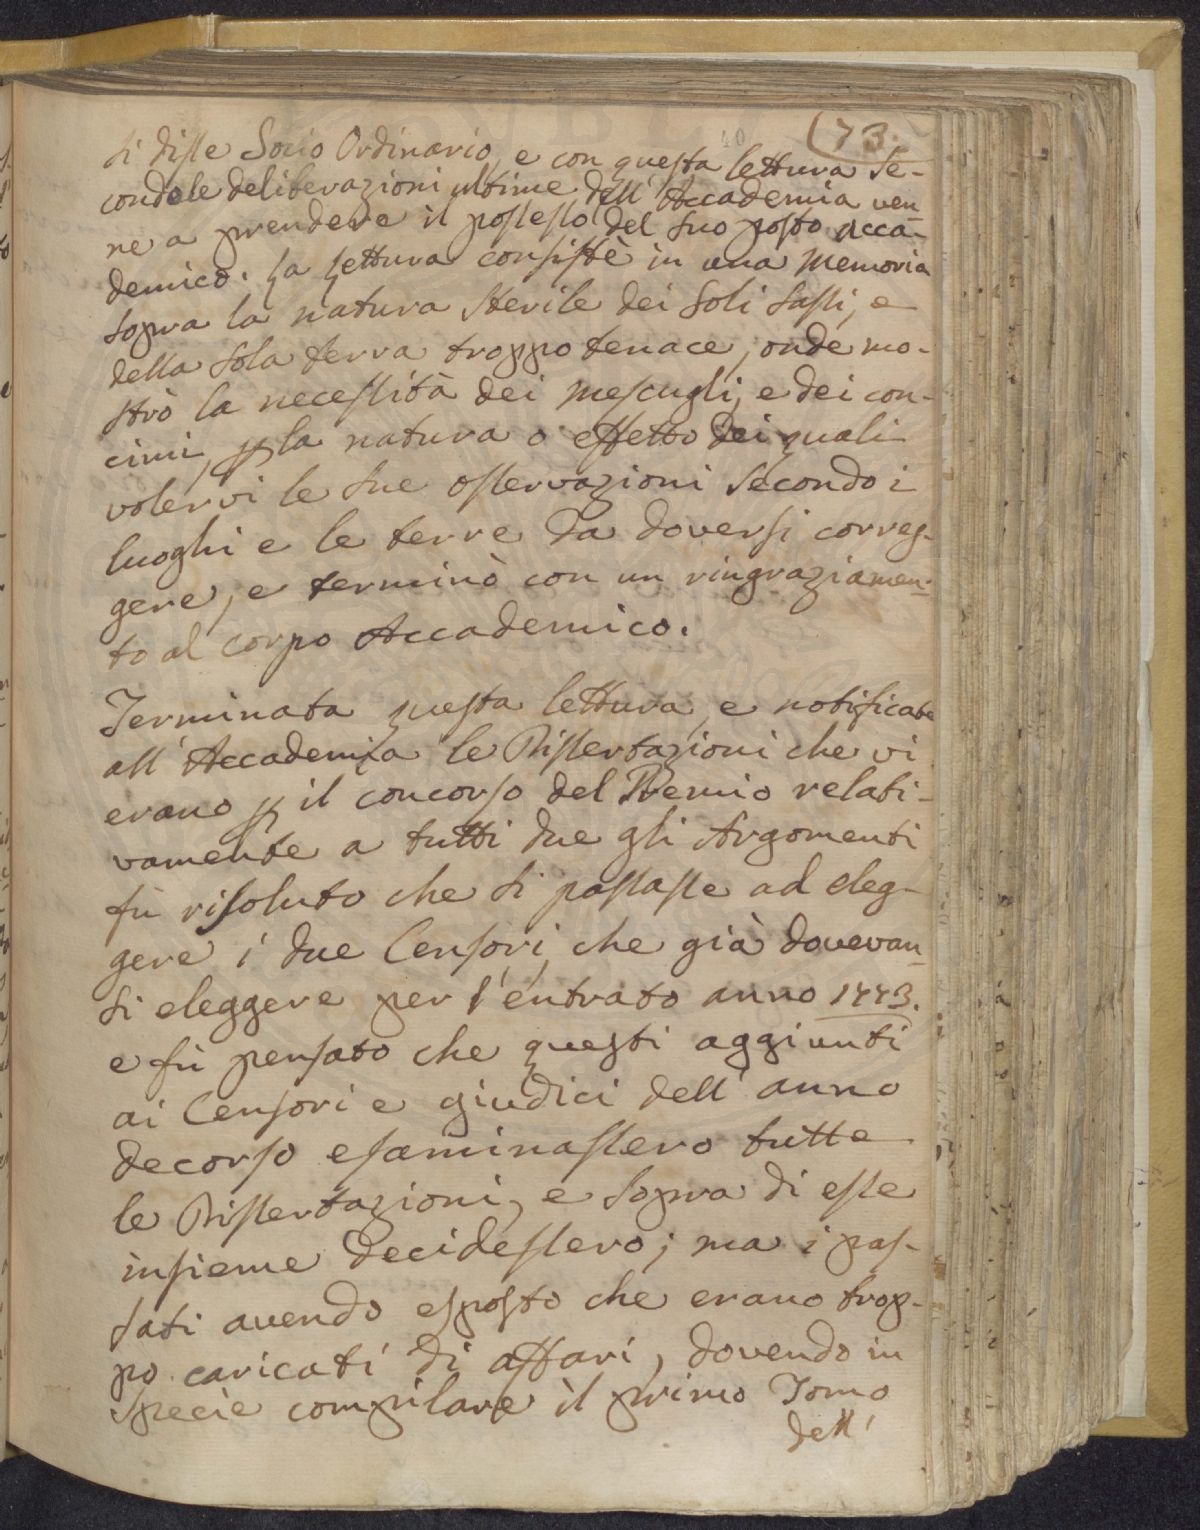 73.
si disse Socio Ordinario, e con questa lettura se-
condo le deliberazioni ultime dell'Accademia ven-
ne a prendere il possesso del suo posto Acca-
demico. La Lettura consistè in una Memoria
sopra la natura sterile dei soli sassi, e
della sola terra troppo tenace, onde mo-
strò la necessità dei mescugli, e dei con-
cimi, p la natura o effetto dei quali
volervi le sue osservazioni secondo i
luoghi e le terre da doversi correg-
gere, e terminò con un ringraziamen-
to al corpo Accademico.
Terminata questa lettura, e notificate
all'Accademia le Dissertazioni che vi
erano p il concorso del Premio relati-
vamente a tutti due gli Argomenti
fù risoluto che si passasse ad eleg-
gere i due Censori, che già dovevan-
si eleggere per l'entrato anno 1773.
e fù pensato che questi aggiunti
ai Censori e giudici dell'anno
decorso esaminassero tutte
le Dissertazioni, e sopra di esse
insieme decidessero; ma i pas-
sati avendo esposto che erano trop-
po caricati di affari, dovendo in
specie compilare il primo Tomo
dell'